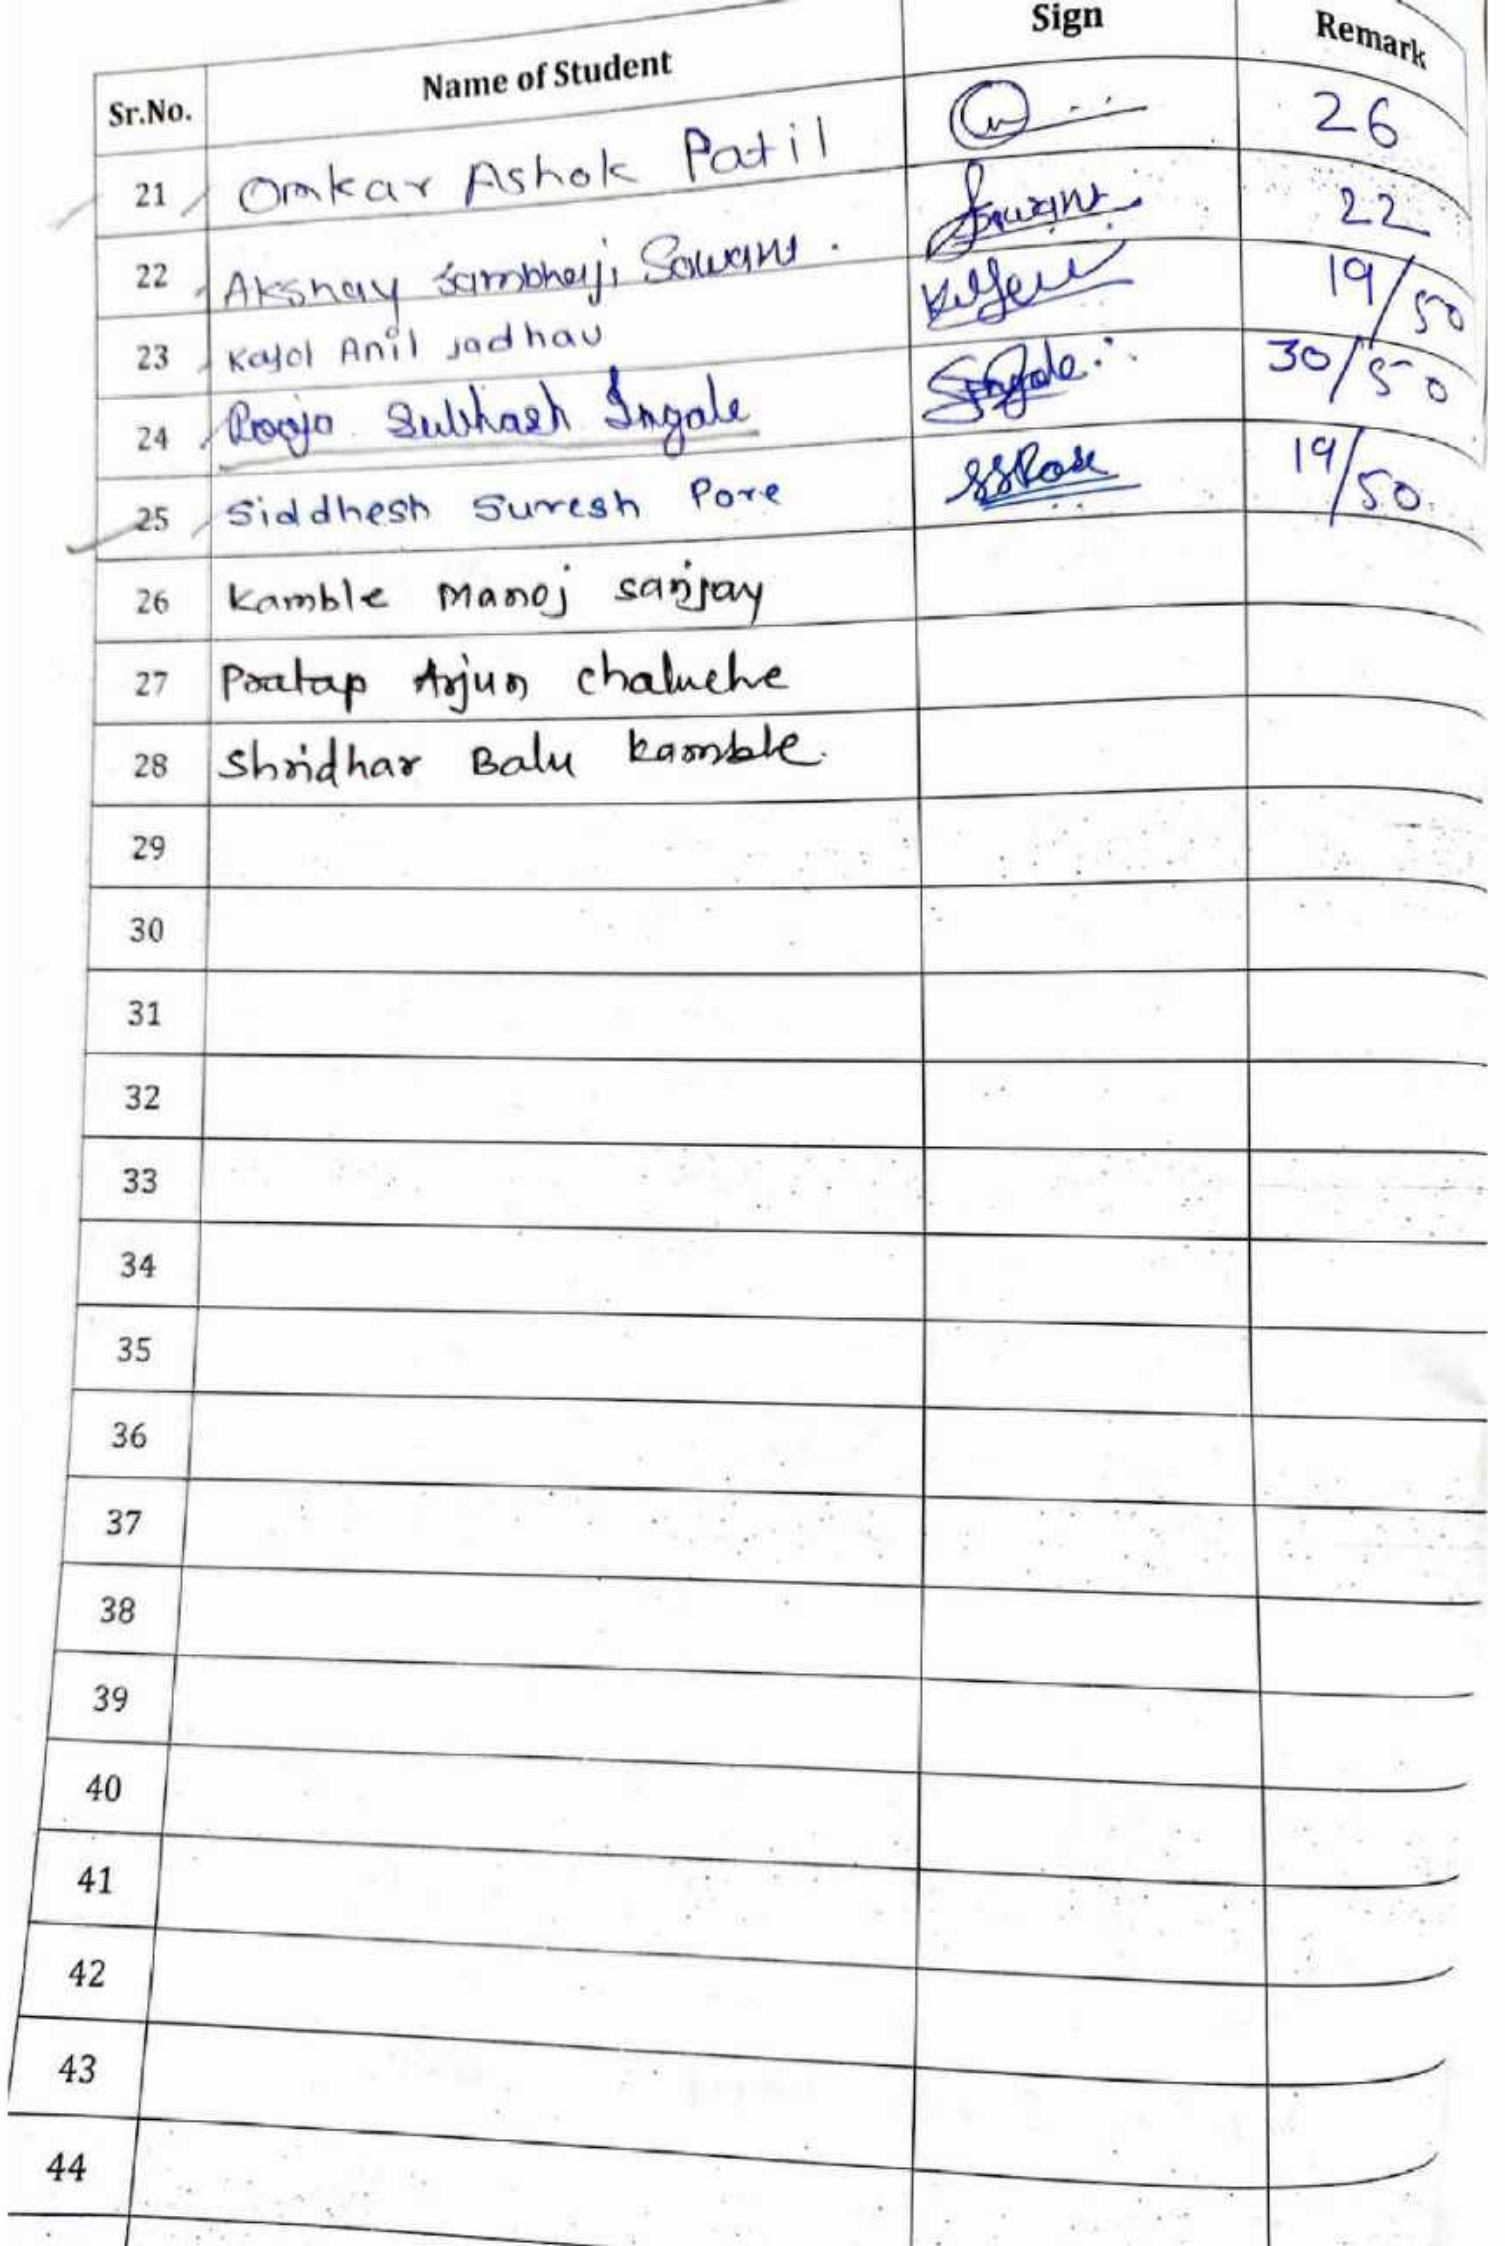 Sr.No. Name of Student Sign Remark
21 Omkar Ashok Patil 26
22 Akshay Sambhaji Sawant. Sawant 22
23 Kajol Anil Jadhav 19/50
24 Pooja Subhash Ingale SIngale 30/50
25 Siddhesh Suresh Pore SSPore 19/50
26 Kamble Manoj sanjay
27 Pratap Arjun chaluche
28 Shridhar Balu kamble.
29
30
31
32
33
34
35
36
37
38
39
40
41
42
43
44